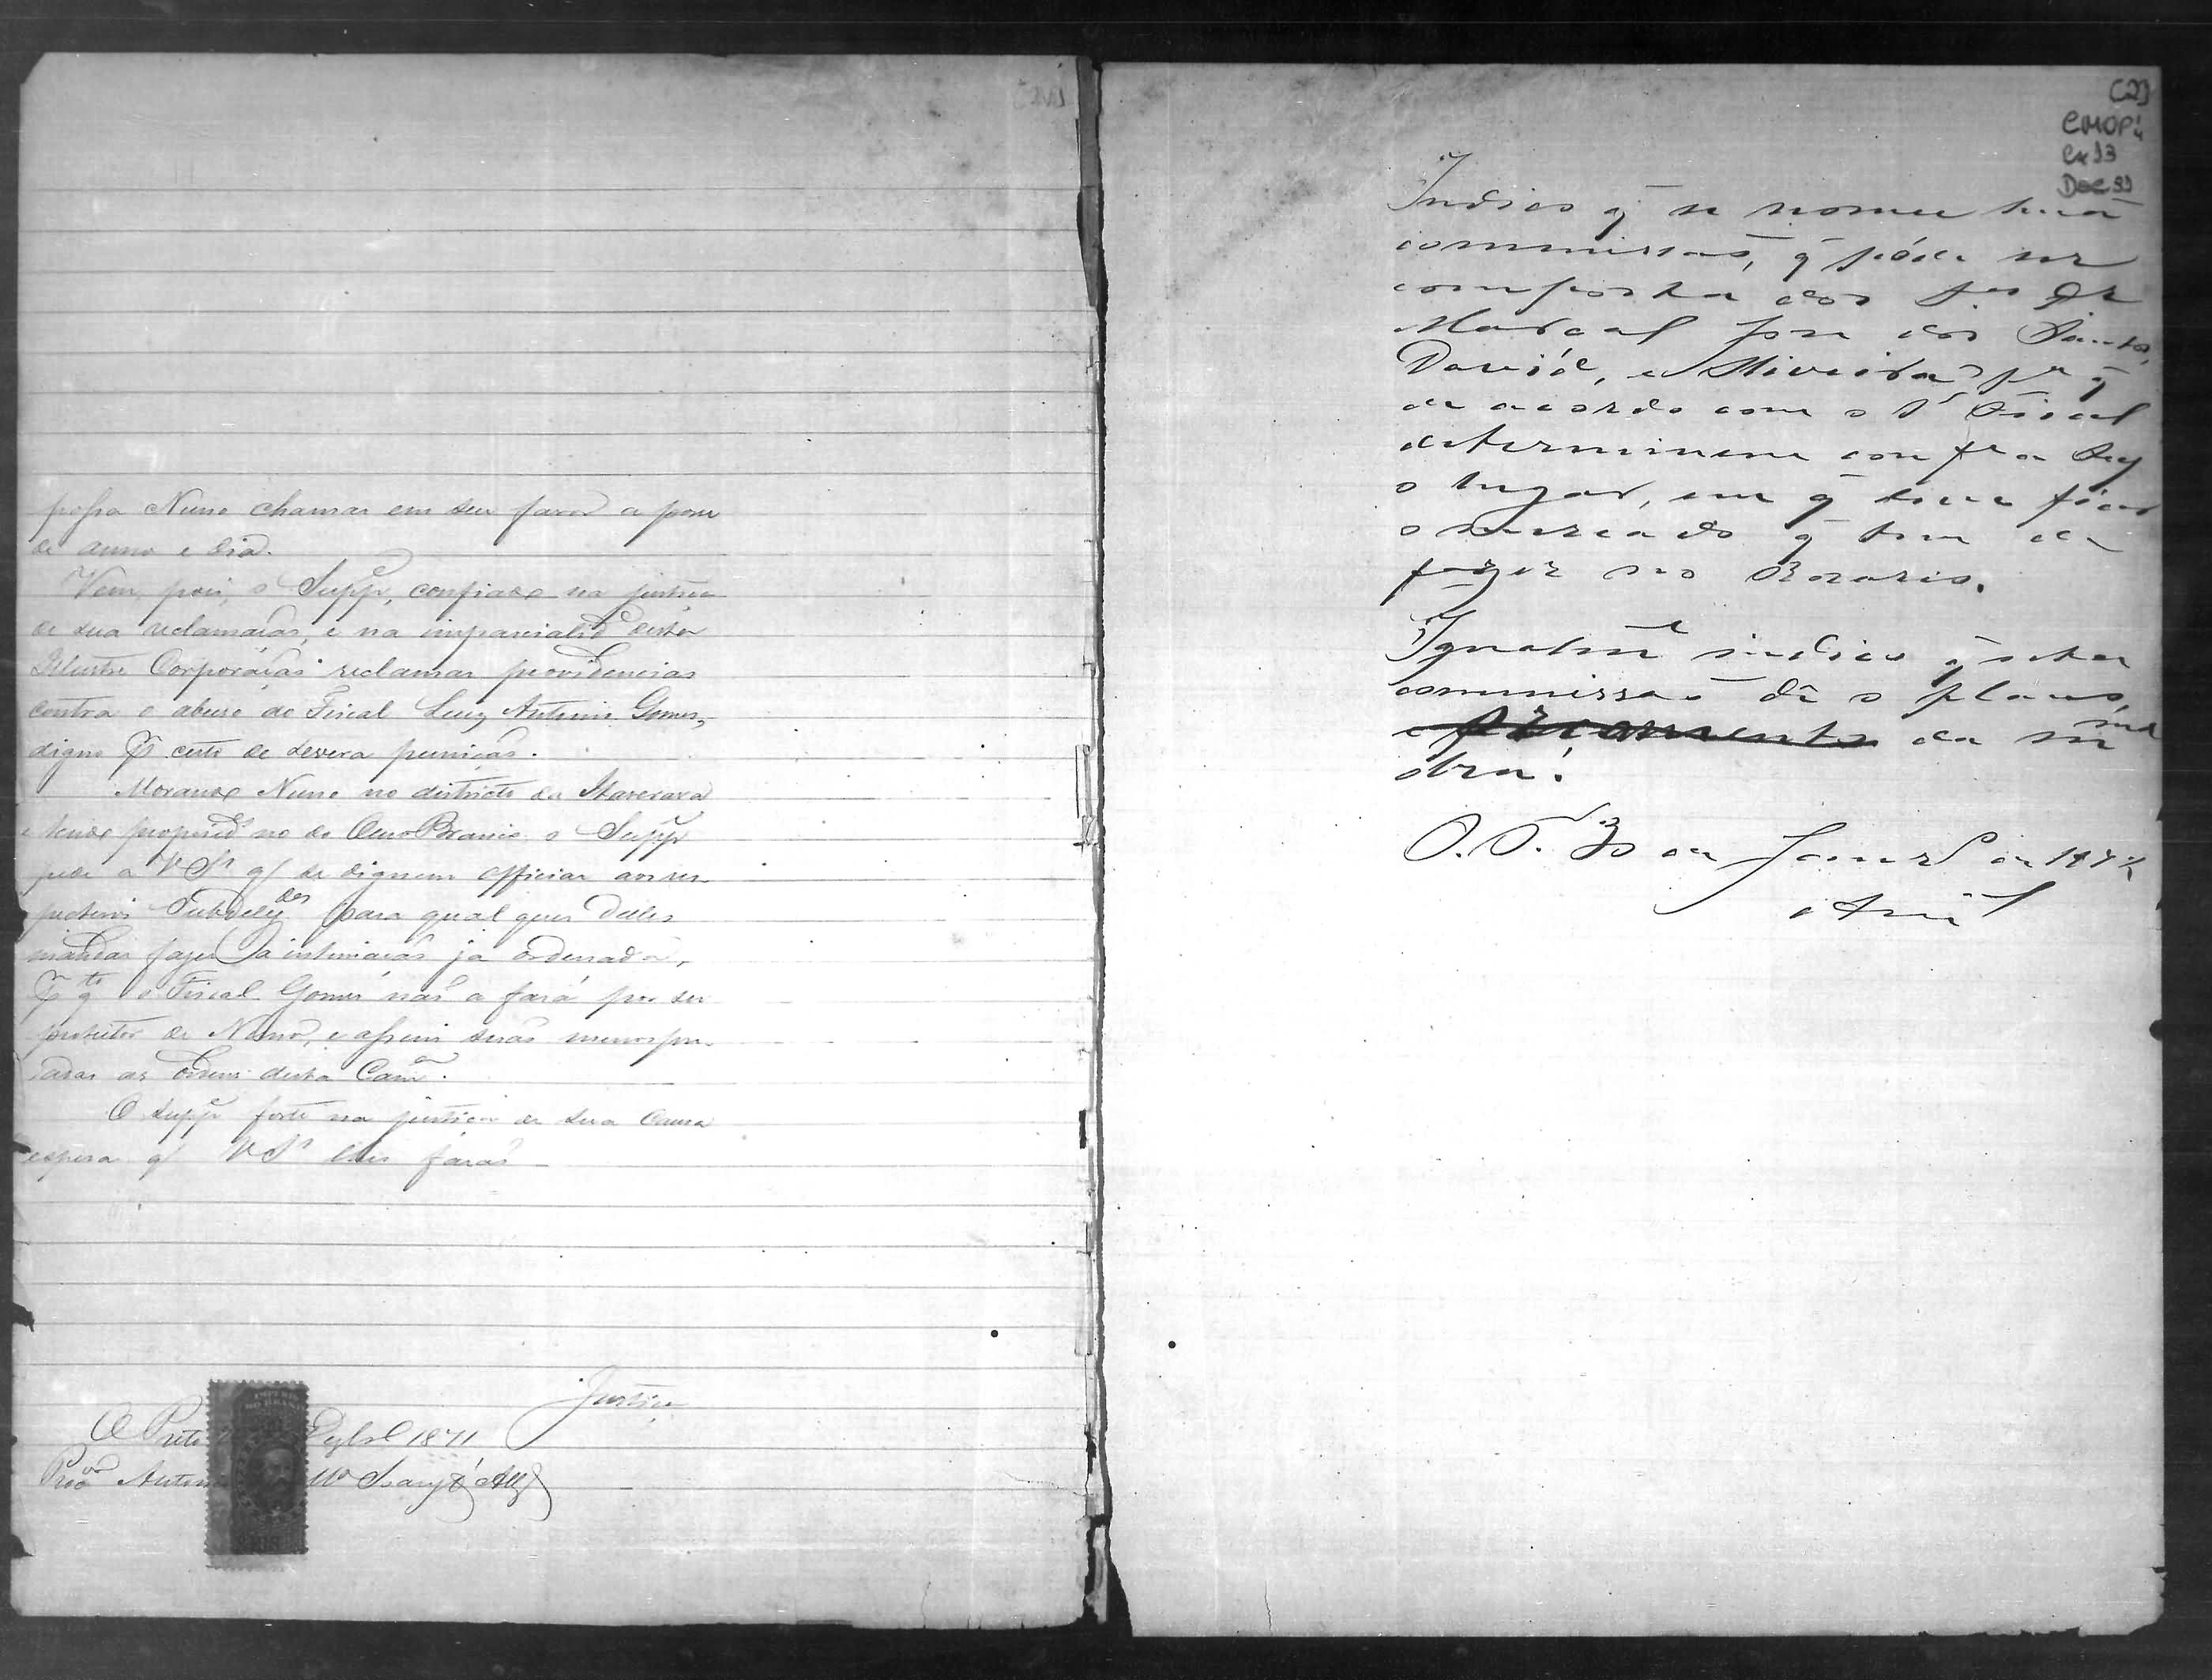 possa Nuno chamar em seu favor a posse
de anno e dia.
Vem, pois, o Supp.e, confiado na justiça
de sua reclamação, e na imparcialid.e desta
Illustre Corporação reclamar providencias
contra o abuso do Fiscal Luiz Antonio Gomes,
digno p.r certo de severa punição.
Morando Nuno no districto da Itaverava
e tendo propried.e no do Ouro Branco, o Supp.e
pede a VS.s q/ se dignem officiar aos res-
pectivos Subdeleg.dos para qual quer delles
mandar fazer a intimação já ordenada,
p.r q.to o Fiscal Gomes não a fará por ser
protector de Nuno, e assim serão menospre-
zadas as ordens desta Cam.a.
O Supp.e forte na justiça de sua Causa
espera q/ VS.s lhes farão
Justiça
O Preto Dezbr.o 1871
Pro.or Antonio
(2)
CMOP
Cx 93
Doc 99
Indico q̃ se nomee huã
commissão, q̃ póde ser
composta dos S.res Dr
Marçal José dos Santos,
David, e Oliveira p.a q̃
de acordo com o S.r Fiscal
determinem
o lugar, em q̃ deve ficar
o mercado q̃ tem de
fazer no Rosario.
Igualm.e indico q̃ esta
commissão dê o plano,
e orçamento da m.ma
obra.
O. P. 30 de Janr.o de 187